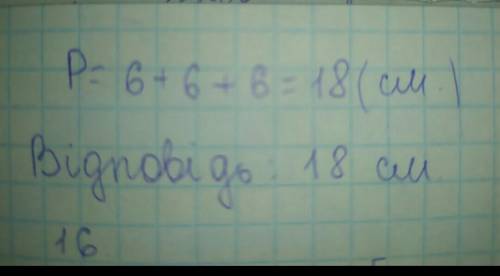 P= 6 + 6 + 6 = 18 (см.)
Відповідь: 18 см
16